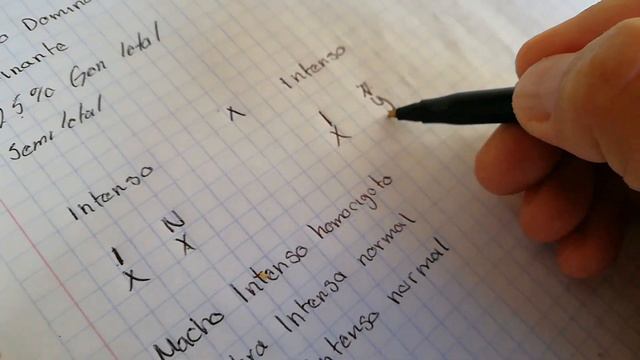 o Domina
inante
25% Gen letal
Semiletal
Intenso x Intenso
I N
X y
I N
X X
Macho Intenso homocigoto
bra Intensa normal
ntenso normal